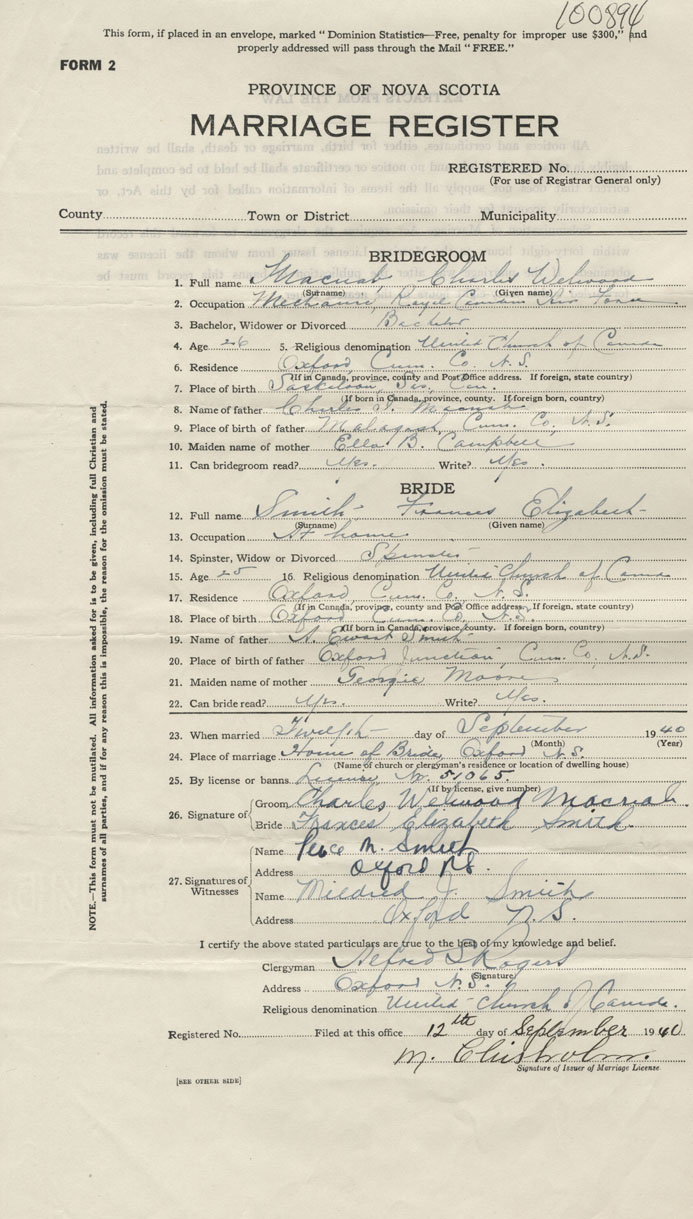 100894
This form, if placed in an envelope, marked "Dominion Statistics—Free, penalty for improper use $300," and
properly addressed will pass through the Mail "FREE."
FORM 2
PROVINCE OF NOVA SCOTIA
MARRIAGE REGISTER
REGISTERED No.
(For use of Registrar General only)
County Town or District Municipality
BRIDEGROOM
1. Full name Macnab Charles Welwood
(Surname) (Given name)
2. Occupation Mechanic, Royal Canadian Air Force
3. Bachelor, Widower or Divorced Bachelor
4. Age 26 5. Religious denomination United Church of Canada
6. Residence Oxford Cum. Co. N.S.
(If in Canada, province, county and Post Office address. If foreign, state country)
7. Place of birth Saskatoon, Sas, Can.
(If born in Canada, province, county. If foreign born, country)
8. Name of father Charles Macnab
9. Place of birth of father Malagash, Cum. Co, N.S.
10. Maiden name of mother Ella B. Campbell
11. Can bridegroom read? Yes. Write? Yes.
BRIDE
12. Full name Smith Frances Elizabeth
(Surname) (Given name)
13. Occupation At home
14. Spinster, Widow or Divorced Spinster
15. Age 25 16. Religious denomination United Church of Canada
17. Residence Oxford Cum. Co. N.S.
(If in Canada, province, county and Post Office address. If foreign, state country)
18. Place of birth Oxford Cum. Co. N.S.
(If born in Canada, province, county. If foreign born, country)
19. Name of father A. Ewart Smith
20. Place of birth of father Oxford Junction, Cum. Co, N.S.
21. Maiden name of mother Georgie Moore
22. Can bride read? Yes. Write? Yes.
23. When married Twelfth day of September 1940
(Month) (Year)
24. Place of marriage Home of Bride, Oxford N.S.
(Name of church or clergyman's residence or location of dwelling house)
25. By license or banns License No. 51065.
(If by license, give number)
26. Signature of
Groom Charles Welwood Macnab.
Bride Frances Elizabeth Smith.
27. Signatures of Witnesses
Name M. Smith
Address Oxford N.S.
Name Mildred J. Smith
Address Oxford N.S.
I certify the above stated particulars are true to the best of my knowledge and belief.
Clergyman Alfred S Rogers
(Signature)
Address Oxford N.S.
Religious denomination United Church of Canada.
Registered No. Filed at this office 12th day of September 1940
M. Chisholm.
Signature of Issuer of Marriage License.
[SEE OTHER SIDE]
NOTE.—This form must not be mutilated. All information asked for is to be given, including full Christian and
surnames of all parties, and if for any reason this is impossible, the reason for the omission must be stated.